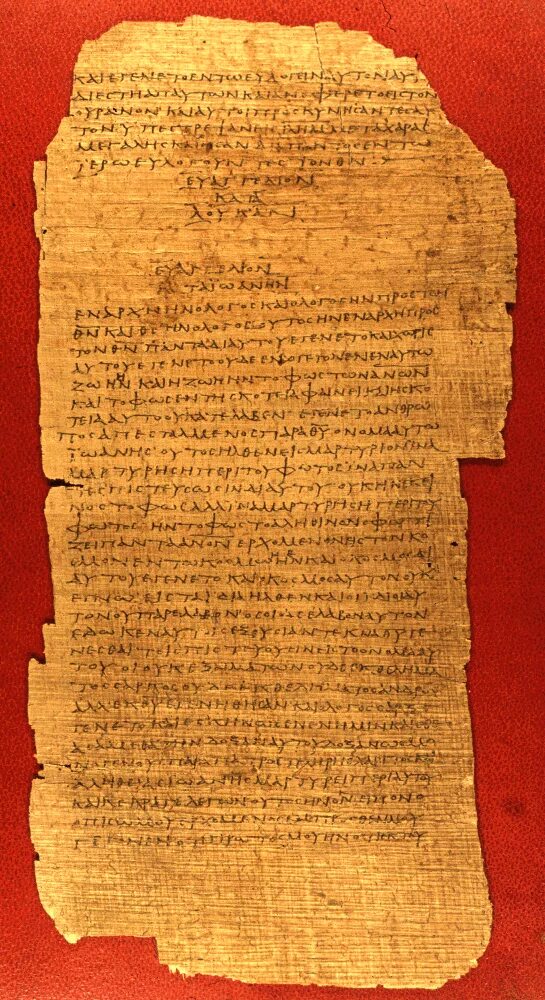 ΚΑΙΕΓΕΝΕΤΟΕΝΤΩΕΥΛΟΓΕΙΝΑΥΤΟΝΑΥΤΟΥ
ΔΙΕϹΤΗΑΠΑΥΤΩΝΚΑΙΑΝΕΦΕΡΕΤΟΕΙϹΤΟΝ
ΟΥΡΑΝΟΝΚΑΙΑΥΤΟΙΠΡΟϹΚΥΝΗϹΑΝΤΕϹΑΥ
ΤΟΝΥΠΕϹΤΡΕΨΑΝΕΙϹΙΗΛΗΜΜΕΤΑΧΑΡΑϹ
ΜΕΓΑΛΗϹΚΑΙΗϹΑΝΔΙΑΠΑΝΤΟϹΕΝΤΩ
ΪΕΡΩΕΥΛΟΓΟΥΝΤΕϹΤΟΝΘΝ
ΕΥΑΓΓΕΛΙΟΝ
ΚΑΤΑ
ΛΟΥΚΑΝ
ΕΥΑΓΓΕΛΙΟΝ
ΚΑΤΑΪΩΑΝΗΝ
ΕΝΑΡΧΗΗΝΟΛΟΓΟϹΚΑΙΟΛΟΓΟϹΗΝΠΡΟϹΤΟΝ
ΘΝΚΑΙΘϹΗΝΟΛΟΓΟϹΟΥΤΟϹΗΝΕΝΑΡΧΗΠΡΟϹ
ΤΟΝΘΝΠΑΝΤΑΔΙΑΥΤΟΥΕΓΕΝΕΤΟΚΑΙΧΩΡΙϹ
ΑΥΤΟΥΕΓΕΝΕΤΟΟΥΔΕΕΝΟΓΕΓΟΝΕΝΕΝΑΥΤΩ
ΖΩΗΗΝΚΑΙΗΖΩΗΗΝΤΟΦΩϹΤΩΝΑΝΩΝ
ΚΑΙΤΟΦΩϹΕΝΤΗϹΚΟΤΙΑΦΑΙΝΕΙΚΑΙΗϹΚΟ
ΤΕΙΑΑΥΤΟΟΥΚΑΤΕΛΑΒΕΝΕΓΕΝΕΤΟΑΝΘΡΩ
ΠΟϹΑΠΕϹΤΑΛΜΕΝΟϹΠΑΡΑΘΥΟΝΟΜΑΑΥΤΩ
ΪΩΑΝΗϹΟΥΤΟϹΗΛΘΕΝΕΙϹΜΑΡΤΥΡΙΟΝΪΝΑ
ΜΑΡΤΥΡΗϹΗΠΕΡΙΤΟΥΦΩΤΟϹΪΝΑΠΑΝ
ΤΕϹΠΙϹΤΕΥϹΩϹΙΝΔΙΑΥΤΟΥΟΥΚΗΝΕΚΕΙ
ΝΟϹΤΟΦΩϹΑΛΛΙΝΑΜΑΡΤΥΡΗϹΗΠΕΡΙΤΟΥ
ΦΩΤΟϹΗΝΤΟΦΩϹΤΟΑΛΗΘΙΝΟΝΟΦΩΤΙ
ΖΕΙΠΑΝΤΑΑΝΟΝΕΡΧΟΜΕΝΟΝΕΙϹΤΟΝΚΟ
ϹΜΟΝΕΝΤΩΚΟϹΜΩΗΝΚΑΙΟΚΟϹΜΟϹΔΙ
ΑΥΤΟΥΕΓΕΝΕΤΟΚΑΙΟΚΟϹΜΟϹΑΥΤΟΝΟΥΚ
ΕΓΝΩΕΙϹΤΑΪΔΙΑΗΛΘΕΝΚΑΙΟΙΪΔΙΟΙΑΥ
ΤΟΝΟΥΠΑΡΕΛΑΒΟΝΟϹΟΙΔΕΕΛΑΒΟΝΑΥΤΟΝ
ΕΔΩΚΕΝΑΥΤΟΙϹΕΞΟΥϹΙΑΝΤΕΚΝΑΘΥΓΕ
ΝΕϹΘΑΙΤΟΙϹΠΙϹΤΕΥΟΥϹΙΝΕΙϹΤΟΟΝΟΜΑΑΥ
ΤΟΥΟΙΟΥΚΕΞΑΙΜΑΤΩΝΟΥΔΕΕΚΘΕΛΗΜΑ
ΤΟϹϹΑΡΚΟϹΟΥΔΕΕΚΘΕΛΗΜΑΤΟϹΑΝΔΡΟϹ
ΑΛΛΕΚΘΥΕΓΕΝΝΗΘΗϹΑΝΚΑΙΟΛΟΓΟϹϹΑΡΞΕ
ΓΕΝΕΤΟΚΑΙΕϹΚΗΝΩϹΕΝΕΝΗΜΙΝΚΑΙΕΘΕ
ΑϹΑΜΕΘΑΤΗΝΔΟΞΑΝΑΥΤΟΥΔΟΞΑΝΩϹΜΟ
ΝΟΓΕΝΟΥϹΠΑΡΑΠΑΤΡΟϹΠΛΗΡΗϹΧΑΡΙΤΟϹΚΑΙ
ΑΛΗΘΕΙΑϹΪΩΑΝΗϹΜΑΡΤΥΡΕΙΠΕΡΙΑΥΤΟΥ
ΚΑΙΚΕΚΡΑΓΕΛΕΓΩΝΟΥΤΟϹΗΝΟΝΕΙΠΟΝΟ
ΟΠΙϹΩΜΟΥΕΡΧΟΜΕΝΟϹΕΜΠΡΟϹΘΕΝΜΟΥ
ΓΕΓΟΝΕΝΟΤΙΠΡΩΤΟϹΜΟΥΗΝΟΤΙΕΚΤΟΥ